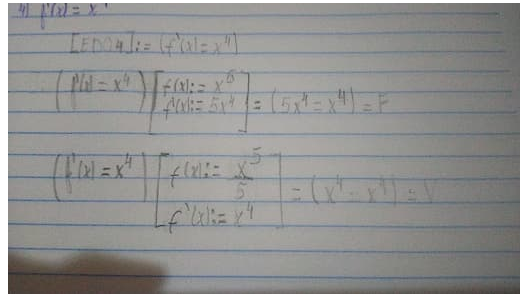 4) f'(x) = x⁴
[EDO4] := (f'(x) = x⁴)
(f'(x) = x⁴) [f(x) := x⁵
f'(x) := 5x⁴] = (5x⁴ = x⁴) = F
(f'(x) = x⁴) [f(x) := x⁵/5
f'(x) := x⁴] = (x⁴ = x⁴) = V